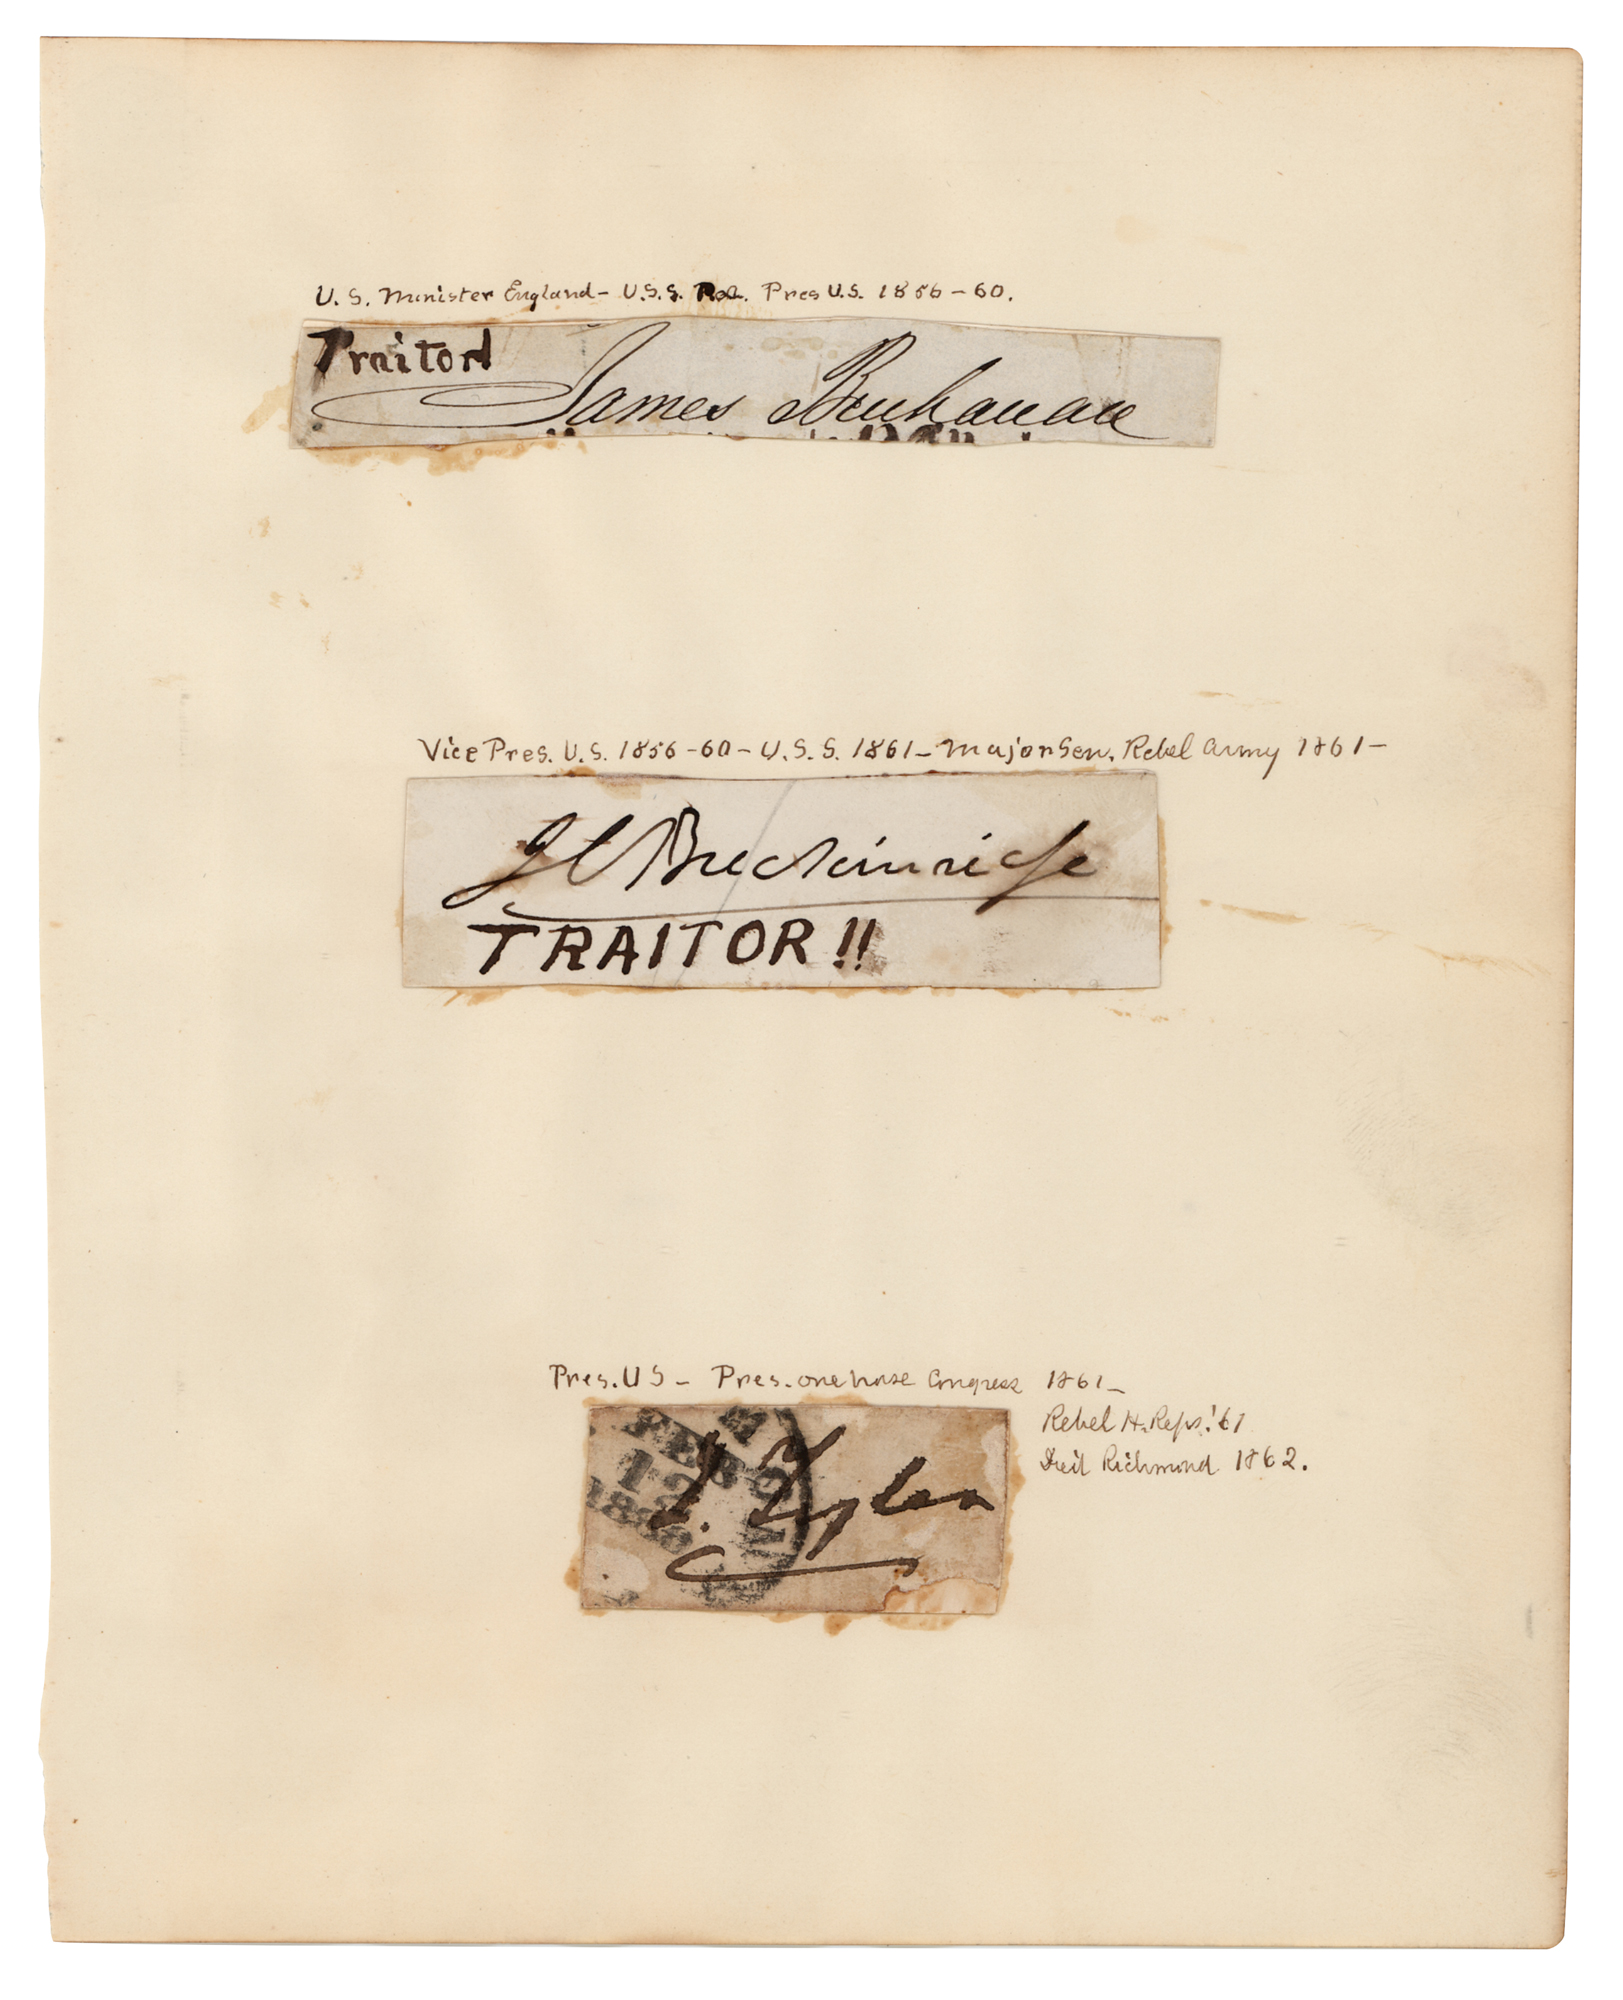 U. S. Minister England - U.S.S. Pres U.S. 1856-60.
Traitor!
James Buchanan
Vice Pres. U.S. 1856-60 - U.S.S. 1861 - Major Gen. Rebel Army 1861 -
J C Breckinridge
TRAITOR!!
Pres. U S - Pres. one horse Congress 1861 -
Rebel H. Reps. '61
Died Richmond 1862.
FEB
12
J. Tyler